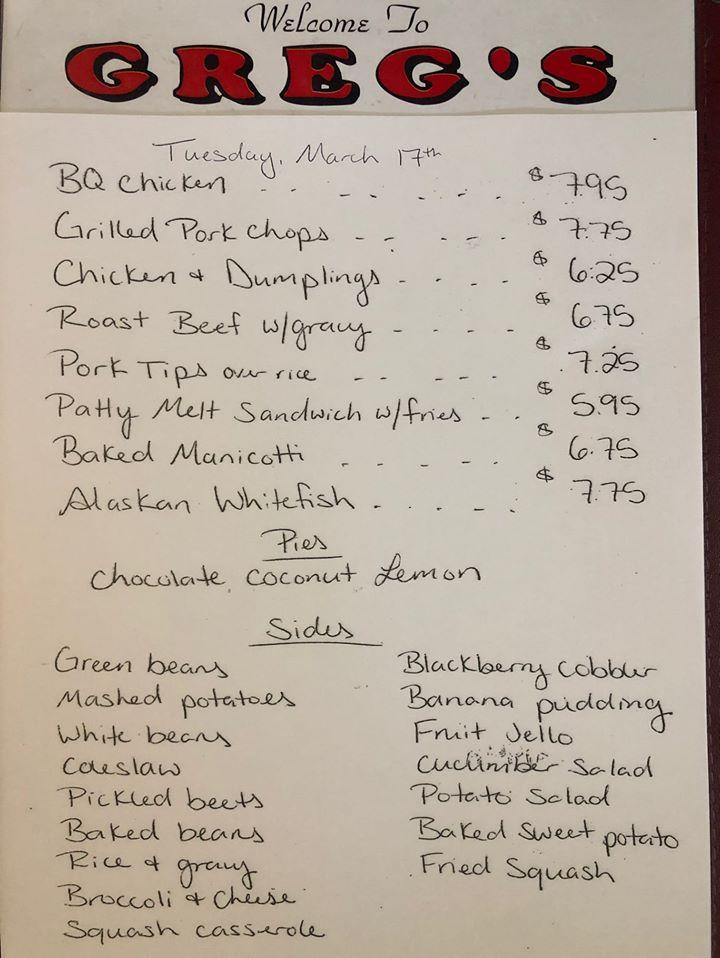 Welcome To
GREG'S
Tuesday, March 17th
BQ Chicken - - - - - - - $ 7.95
Grilled Pork Chops - - - - - $ 7.75
Chicken & Dumplings - - - - $ 6.25
Roast Beef w/gravy - - - - $ 6.75
Pork Tips over rice - - - - - $ 7.25
Patty Melt Sandwich w/fries - - $ 5.95
Baked Manicotti - - - - - $ 6.75
Alaskan Whitefish - - - - $ 7.75
Pies
Chocolate, Coconut Lemon
Sides
Green beans
Mashed potatoes
White beans
Coleslaw
Pickled beets
Baked beans
Rice & gravy
Broccoli & Cheese
Squash casserole
Blackberry cobbler
Banana pudding
Fruit Jello
Cucumber Salad
Potato Salad
Baked Sweet potato
Fried Squash